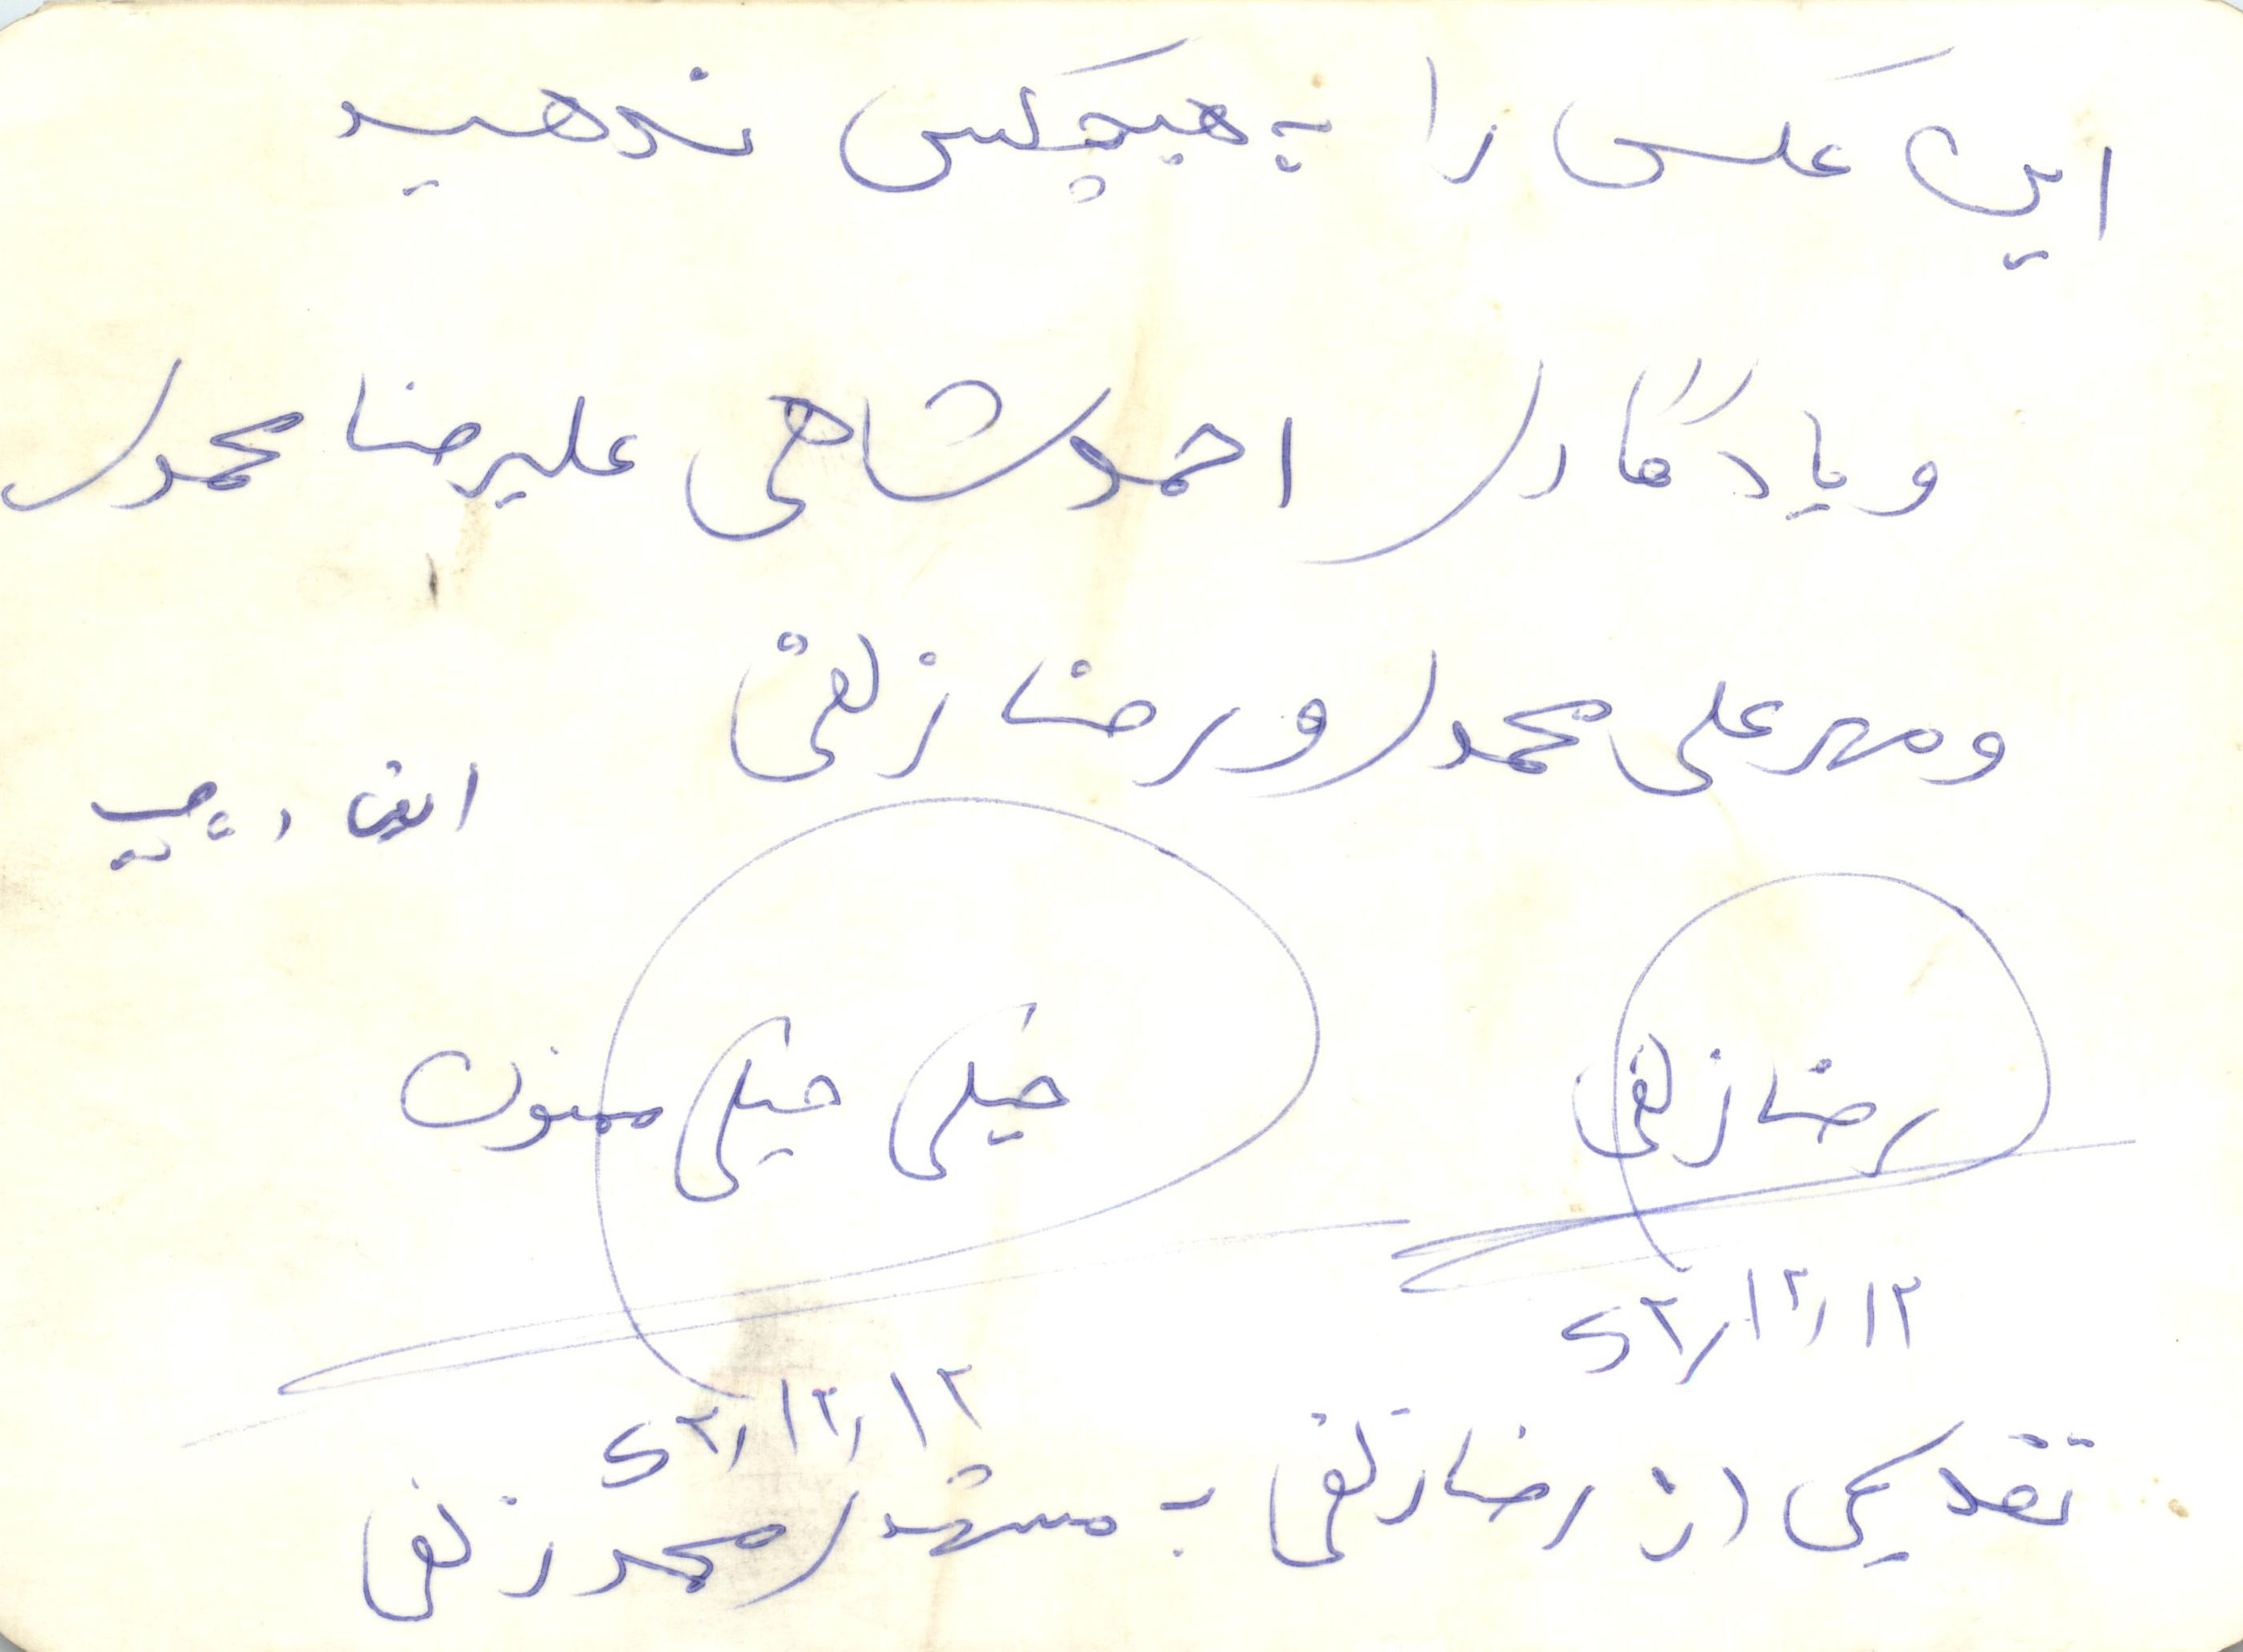 این عکس را به هیچکس ندهید
و یادگار از احمد شاهی علیرضا محمدی
و مهر علی محمدی و رضا زلفی
رضا زلفی
خیلی خیلی ممنون
۵۲/۱۲/۱۲
۵۲/۱۲/۱۲
تقدیمی از رضا زلفی به مشهدی محمد زلفی